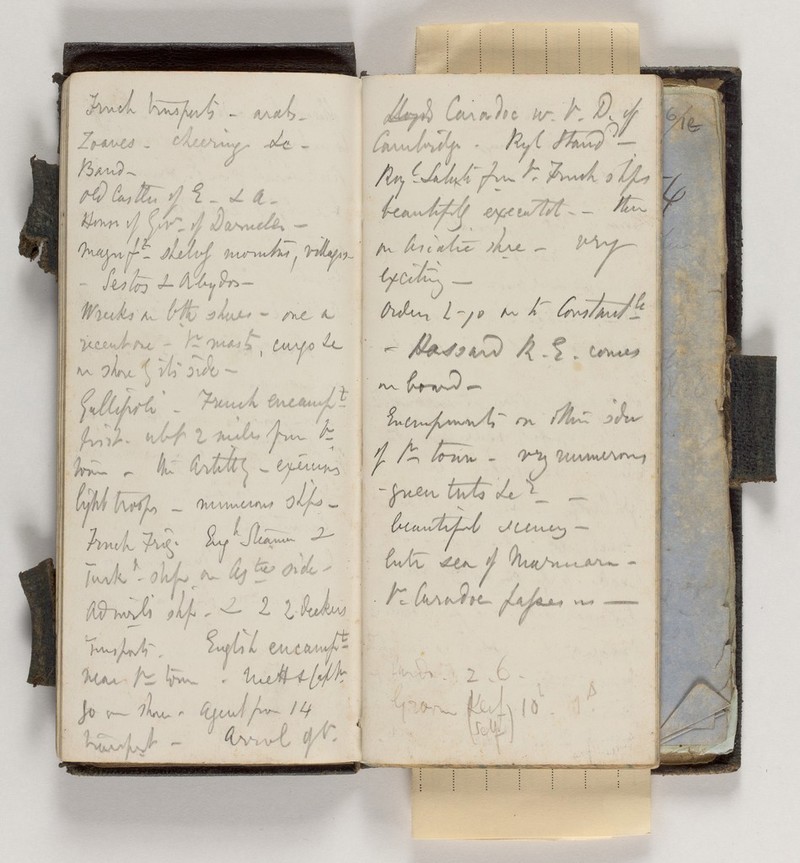 French transports - arabs -
Zoaves - cheering &c -
Band -
Old Castles of E - & A -
House of Govr. of Dardnels -
magnift. shelvg mountns, villages -
- Sestos & Abydos -
Wrecks on bth shores - one a
recent one - Vr masts, cargo &c
on shore by its side -
Gallipoli - French encampt
first - abt 2 miles from Vr
town - the Artilly - exercisg
light troops - numerous ships -
French Frig. Engh Steamer &
Turkh ships on Astic side -
Admirls ship - & 2 2 deckers
Transports. English encampt
near Vr town. & Captn
go on shore - agent from 14
transport - Arrivl of Vr
Caradoc w. V. D. of
Cambridge. Ryl Standd -
Royl Salute from Vr French ships
beautifly executed -- then
on Asiatic shore - very
exciting -
Orders to go on to Constantle
- Hassard R. E. comes
on board -
Encampments on other side
of Vr town - very numerous
- green tents &c -
beautiful scenery -
Entr sea of Marmara -
Vr Caradoc passes us -
2. 6.
Groom (Keef 10
(Self)
6/
4